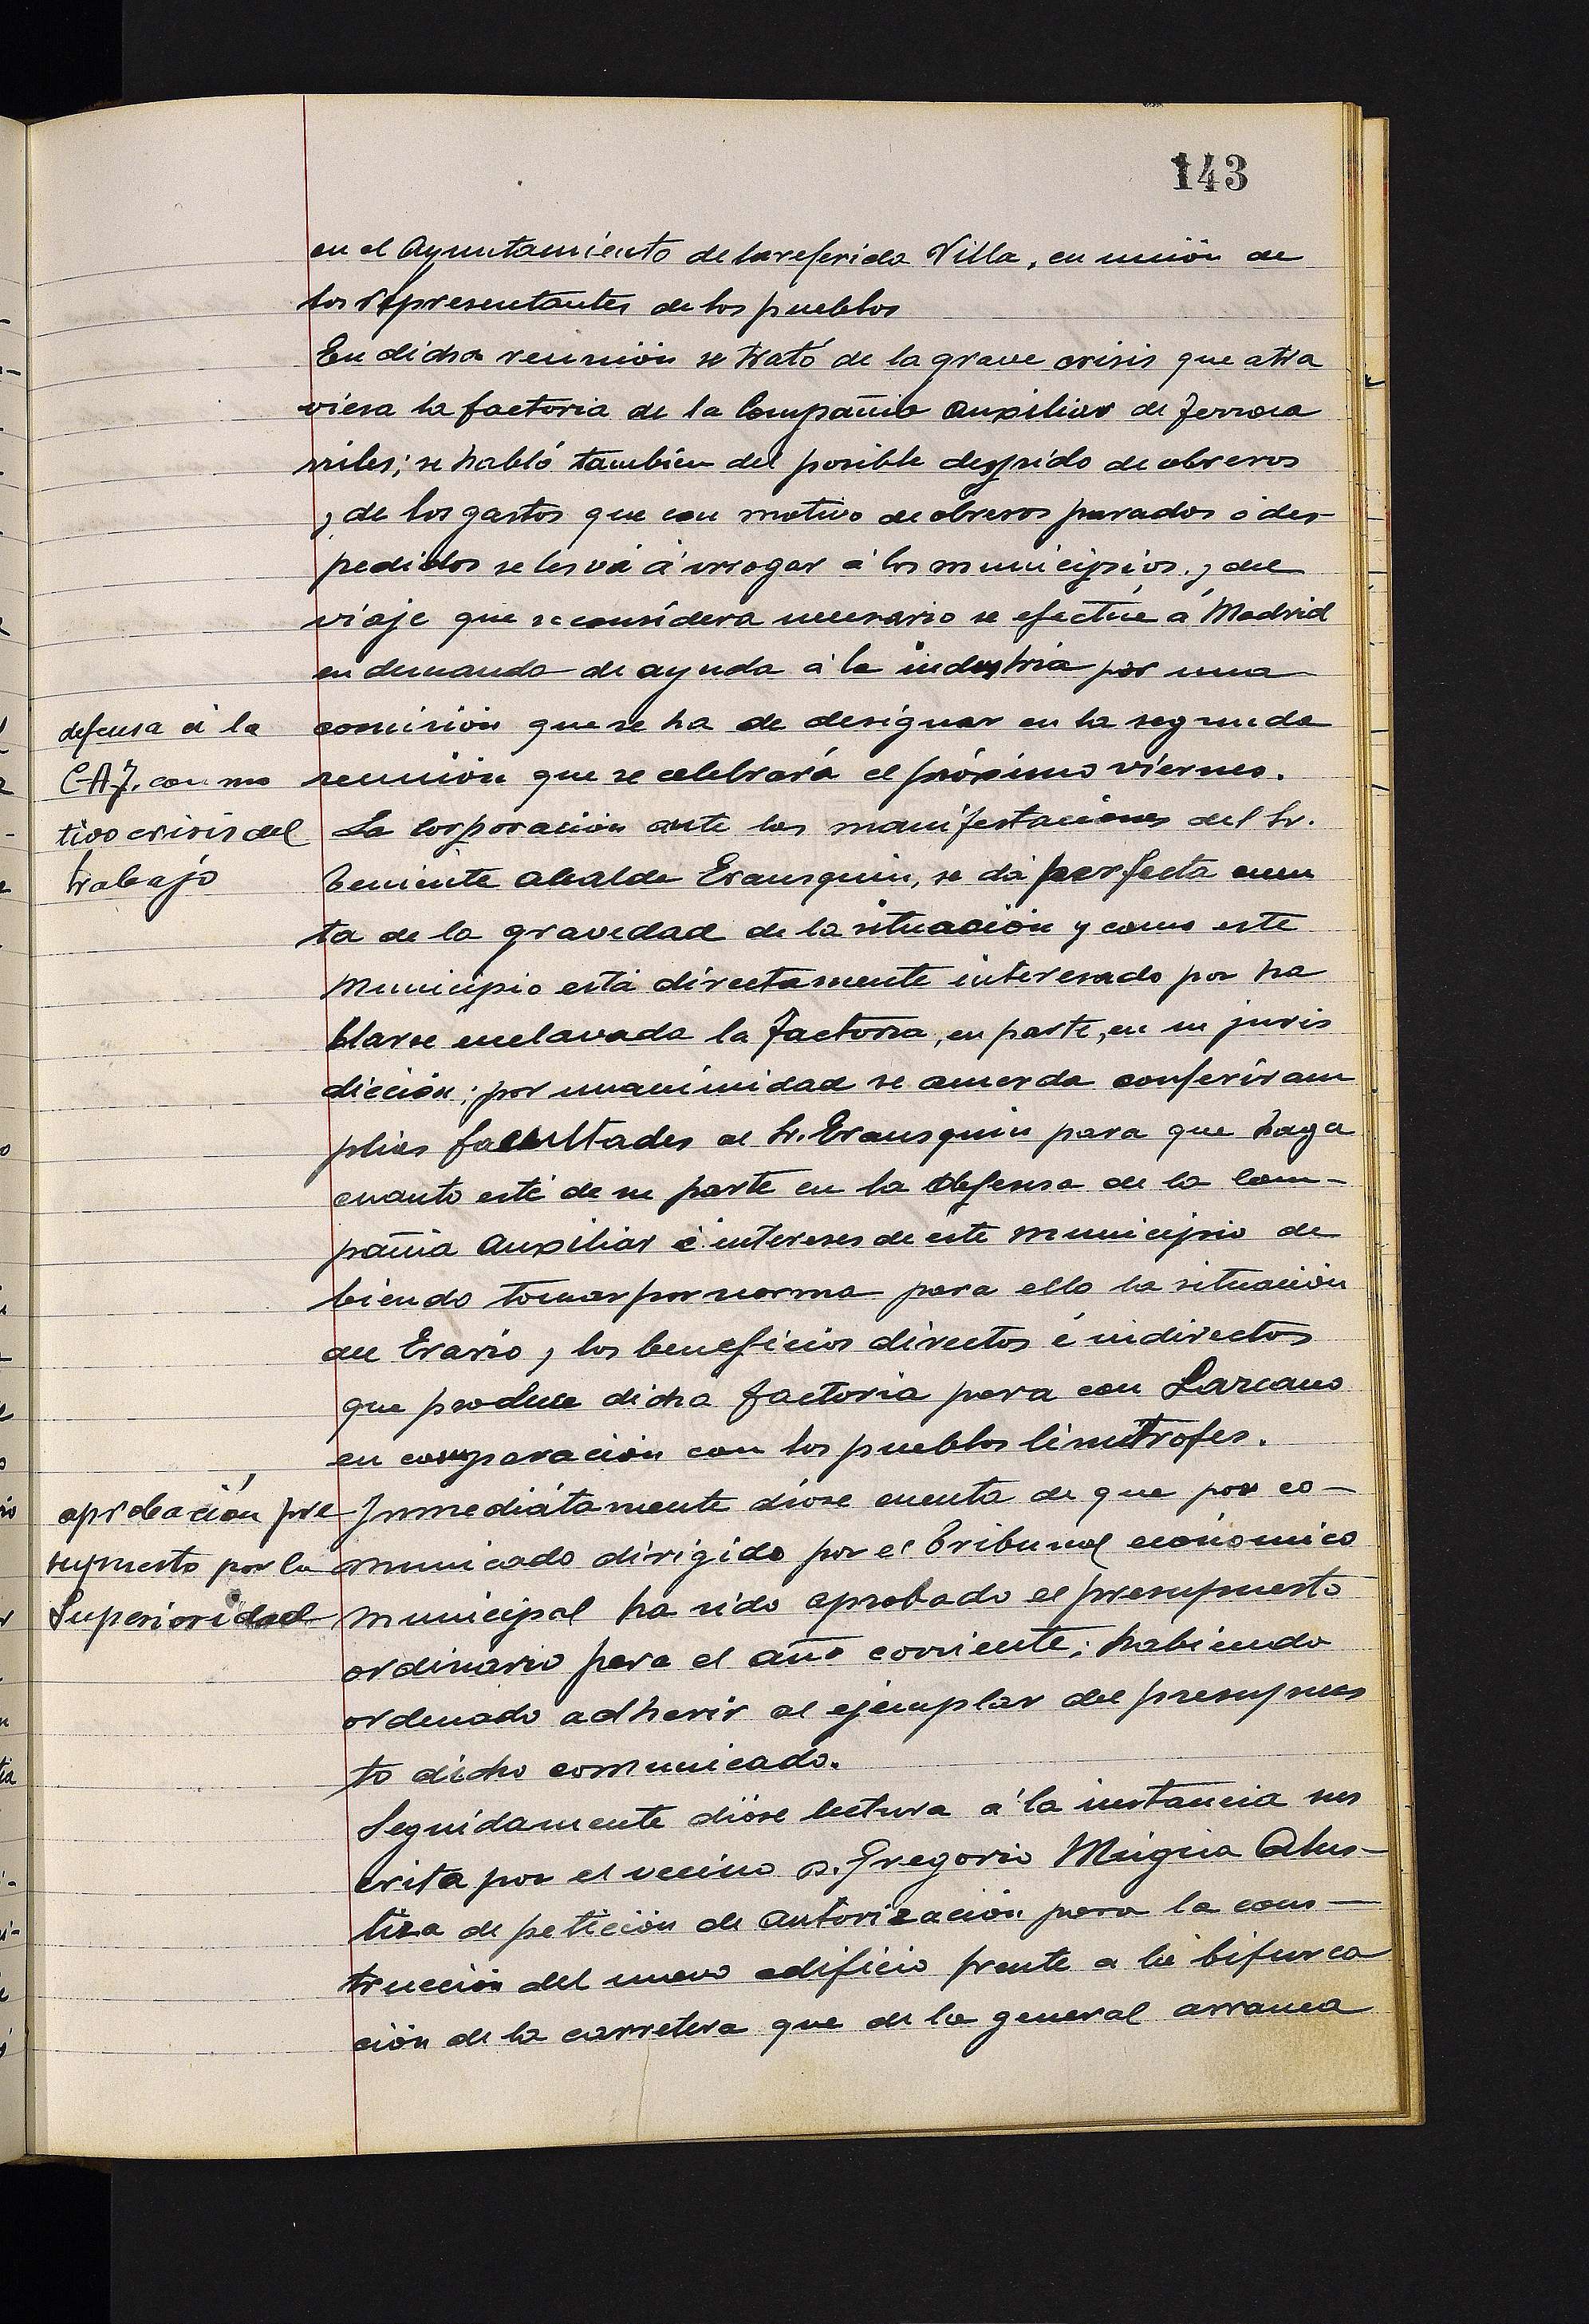 143
en el Ayuntamiento de la referida Villa, en unión de
los representantes de los pueblos
En dicha reunión se trató de la grave crisis que atra
viesa la factoria de la Compañia Auxiliar de Ferroca
rriles; se habló tambien del posible despido de obreros
y de los gastos que con motivo de obreros parados ó des-
pedidos se les vá á irrogar á los municipios, y del
viaje que se considera necesario se efectúe á Madrid
en demanda de ayuda á la industria por una
defensa á la
C.A.F. con mo
tivo crisis del
trabajo
comisión que se ha de designar en la segunda
reunión que se celebrará el próximo viérnes.
La Corporación ante las manifestaciones del Sr.
Teniente Alcalde Erausquin, se dá perfecta cuen
ta de la gravedad de la situación y como este
Municipio está directamente interesado por ha
llarse enclavada la factoria, en parte, en su juris
dicción; por unanimidad se acuerda conferir am
plias facultades al Sr. Erausquin para que haga
cuanto esté de su parte en la defensa de la Com-
pañia Auxiliar é intereses de este Municipio de
biendo tomar por norma para ello la situación
del Erario, y los beneficios directos é indirectos
que produce dicha factoria para con Lazcano
en comparación con los pueblos limitrofes.
aprobación pre
supuesto por la
Superioridad
Inmediátamente dióse cuenta de que por co-
municado dirigido por el Tribunal económico
municipal ha sido aprobado el presupuesto
ordinario para el año corriente; habiendo
ordenado adherir al ejemplar del presupues
to dicho comunicado.
Seguidamente dióse lectura á la instancia sus
crita por el vecino D. Gregorio Múgica Alus-
tiza de petición de autorización para la cons-
trucción del nuevo edificio frente a la bifurca
ción de la carretera que de la general arranca